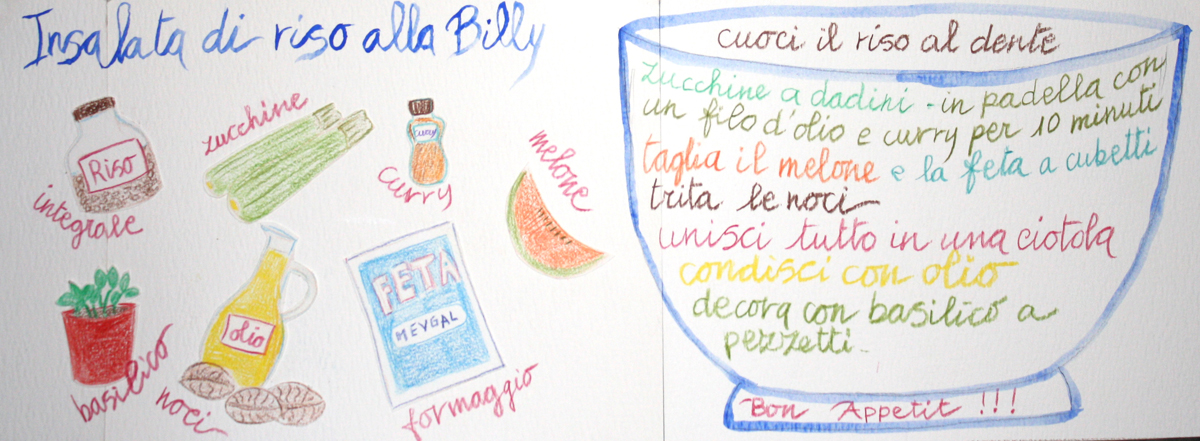 Insalata di riso alla Billy
Riso
integrale
zucchine
curry
curry
melone
basilico
olio
noci
FETA
MEVGAL
formaggio
cuoci il riso al dente
zucchine a dadini - in padella con
un filo d'olio e curry per 10 minuti
taglia il melone e la feta a cubetti
trita le noci
unisci tutto in una ciotola
condisci con olio
decora con basilico a
pezzetti
Bon Appetit !!!